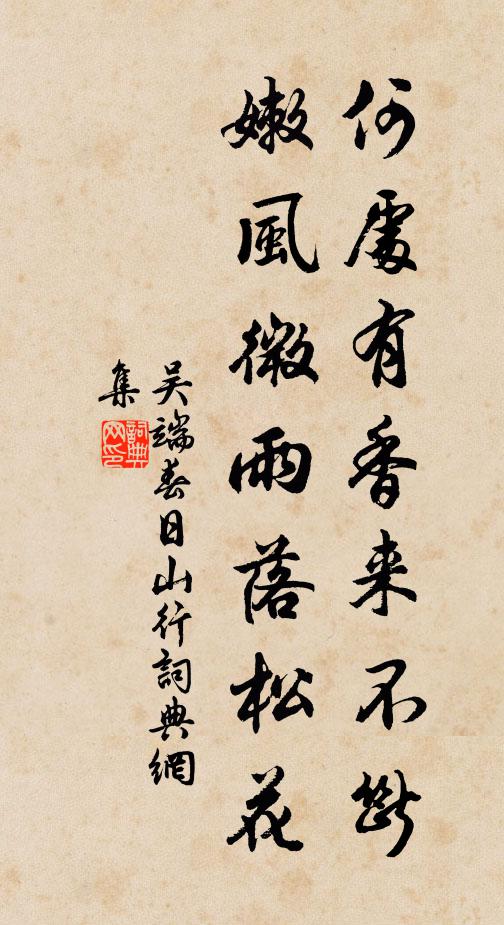 何處有香来不斷
嫩風微雨落松花
吴端春日山行詞典網
集
詞典
网印